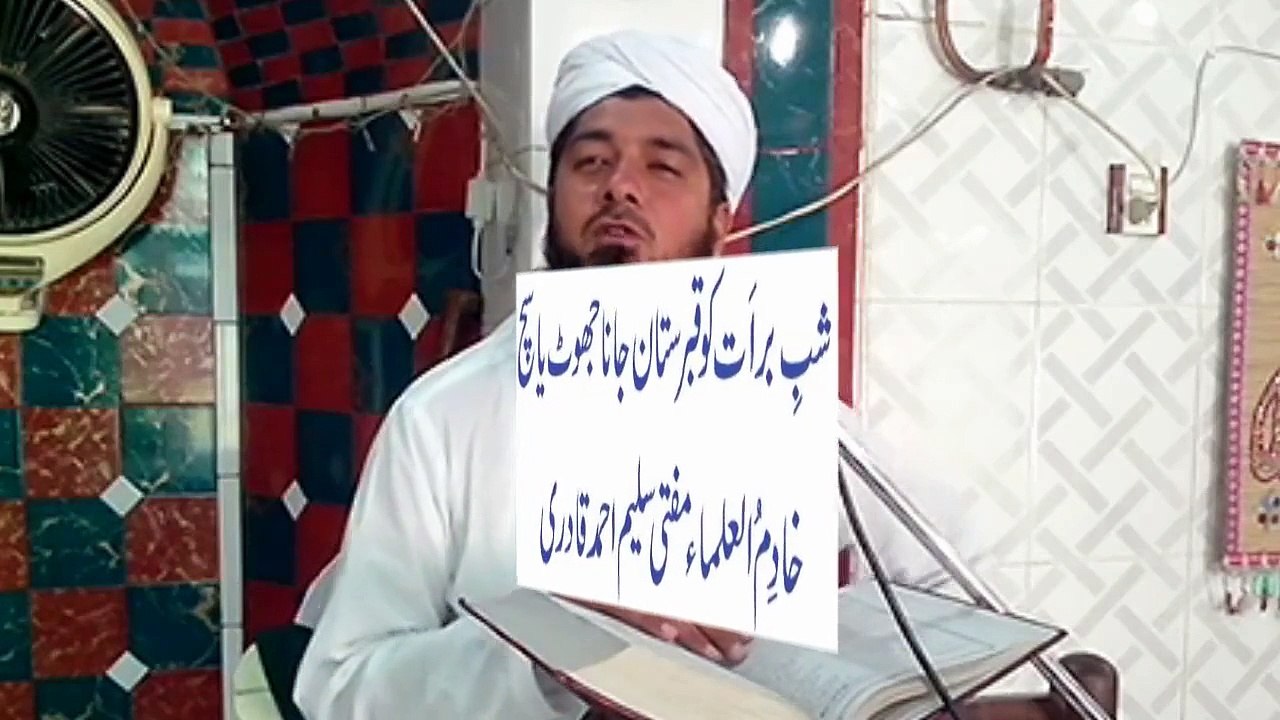 شبِ برأت کو قبرستان جانا جھوٹ یا سچ
خادِمُ العلماء مفتی سلیم احمد قادری